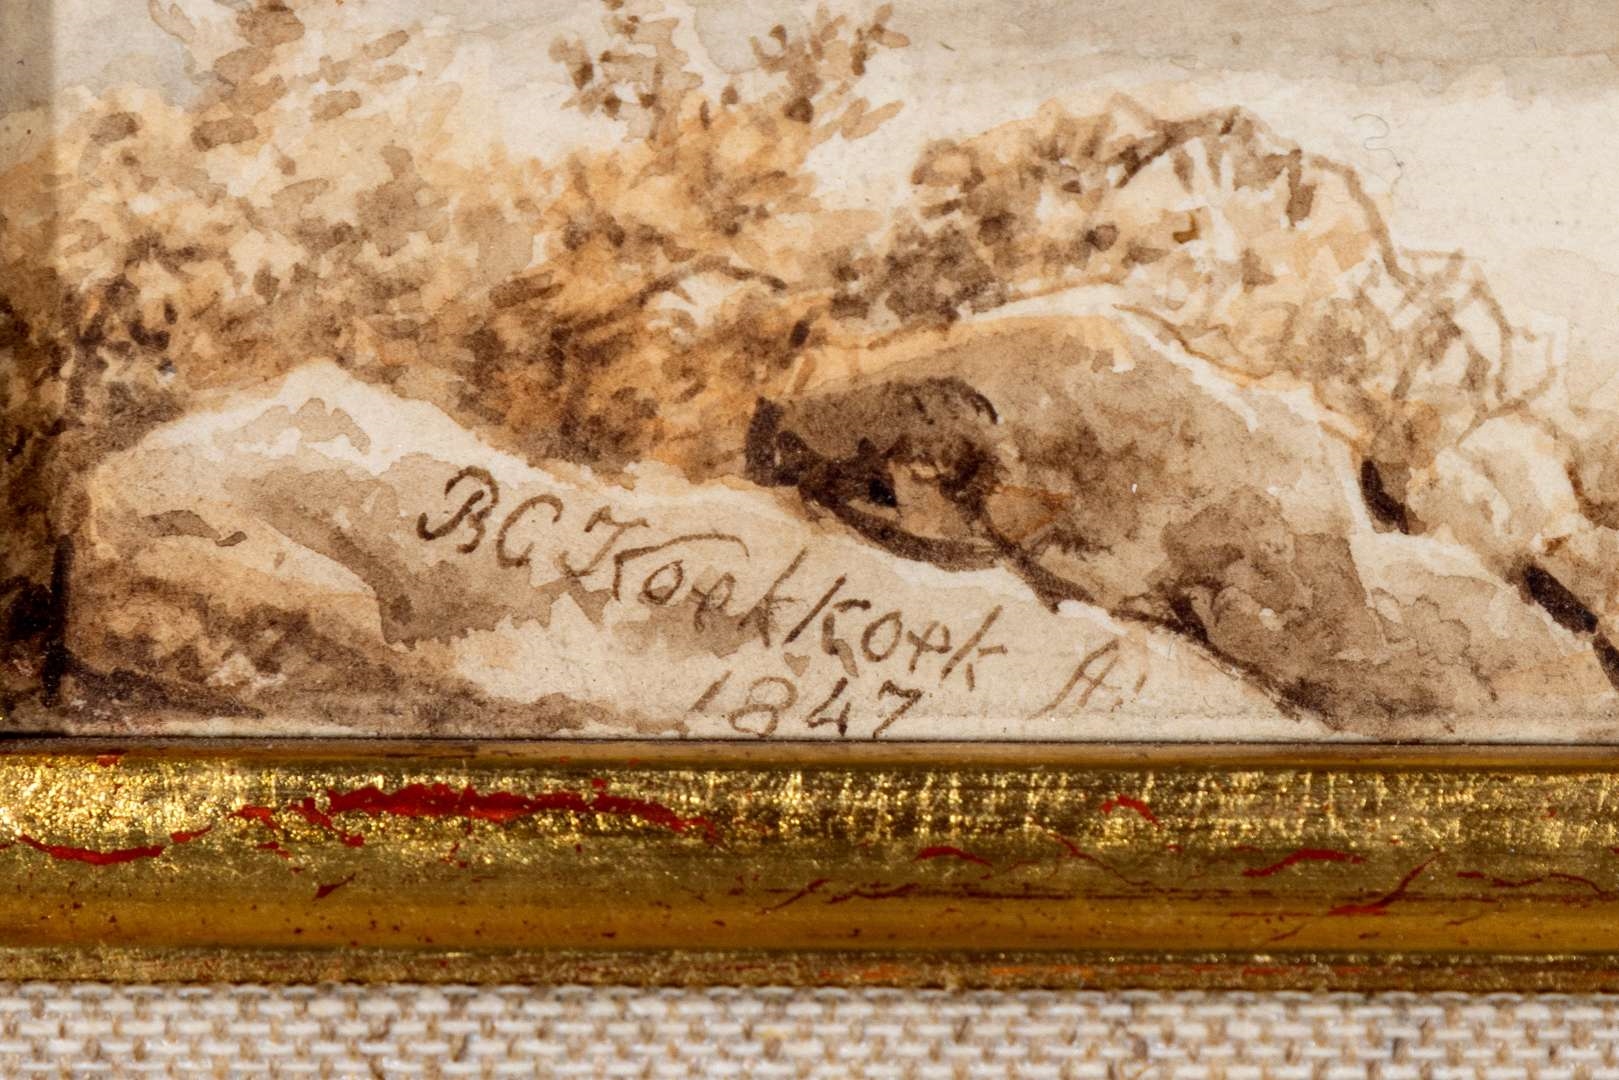 BC Koekkoek A:
1847